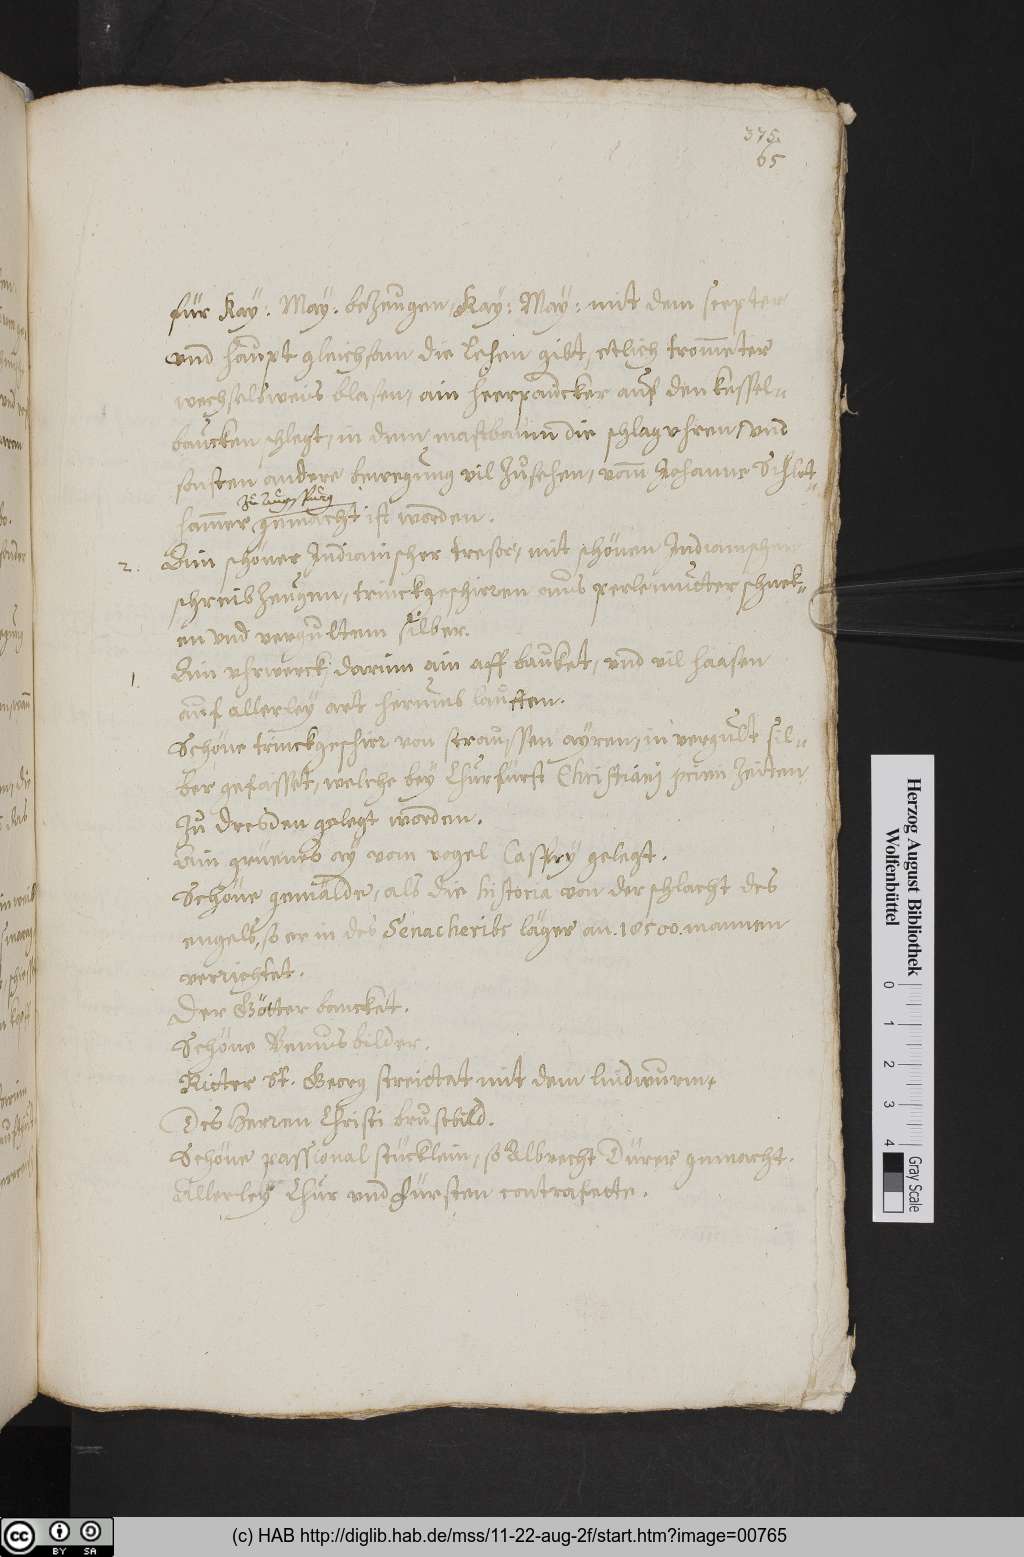 375.
65
für Kay: May: bezeugen, Kay: May: mit dem scepter
vnd haupt gleichsam die lehen gibt, etlich trom̄eter
wechselsweis blasen, ain heerpaucker auf den kessel-
baucken schlegt, in dem mastbaum die schlag vhren, vnd
sonsten andere bewegung vil zusehen, vom Johanne Schlot-
zu Augspurg
ham̄er gemacht ist worden.
2. Ain schöner Indianischer tresor, mit schönen Indianischen
schreibzeugen, trinckgeschirren aus perlemutter schnek-
en vnd vergultem silber.
1. Ain vhrwerck, darinn ain aff bauket, vnd vil haasen
auf allerley art herumb lauffen.
Schöne trinckgeschirr von straussen ayren, in vergult sil-
ber gefasset, welche bey Churfürst Christiani primi zeitten
zu Dresden gelegt worden.
Ain grüenes ay vom vogel Cassary gelegt.
Schöne gemälde, als die historia von der schlacht des
engels, so er in des Senacheribs läger an. 18500. mannen
verrichtet.
Der Götter bancket.
Schöne Venusbilder.
Ritter St. Georg streittet mit dem lindwurm,
Des Herren Christi brustbild.
Schöne passional stücklein, so Albrecht Dürer gemacht.
Allerley Chur vnd fürsten contrafette.
Herzog August Bibliothek
Wolfenbüttel
0 1 2 3 4
Gray Scale
cc BY SA
(c) HAB http://diglib.hab.de/mss/11-22-aug-2f/start.htm?image=00765